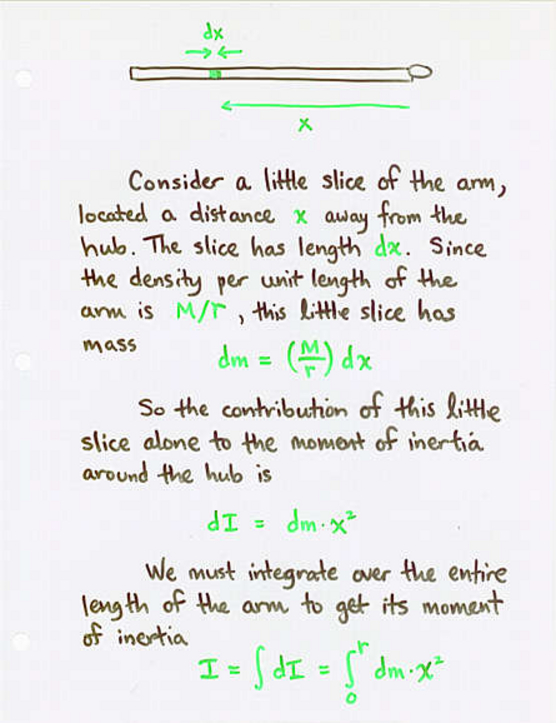 dx
x
Consider a little slice of the arm,
located a distance x away from the
hub. The slice has length dx. Since
the density per unit length of the
arm is M/r, this little slice has
mass
dm = (M/r) dx
So the contribution of this little
slice alone to the moment of inertia
around the hub is
dI = dm·x²
We must integrate over the entire
length of the arm to get its moment
of inertia
I = ∫dI = ∫₀ʳ dm·x²